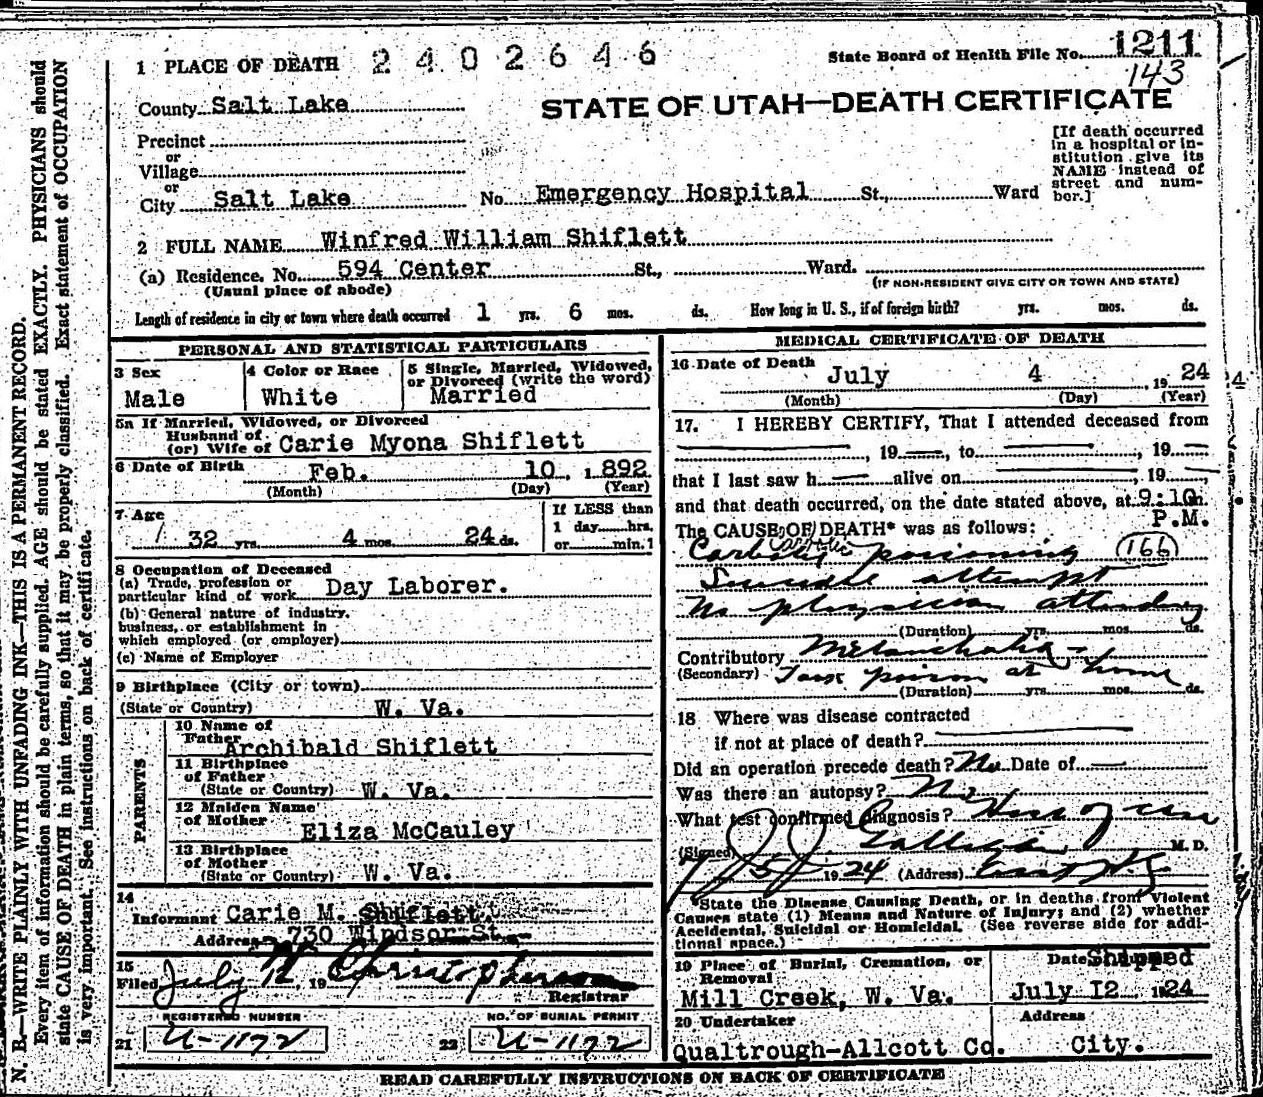 State Board of Health File No. 1211
143
1 PLACE OF DEATH 2402646
STATE OF UTAH—DEATH CERTIFICATE
County Salt Lake
Precinct
or
Village
or
City Salt Lake No. Emergency Hospital St., Ward
[If death occurred
in a hospital or in-
stitution give its
NAME instead of
street and num-
ber.]
2 FULL NAME Winfred William Shiflett
(a) Residence. No. 594 Center St., Ward.
(Usual place of abode) (IF NON-RESIDENT GIVE CITY OR TOWN AND STATE)
Length of residence in city or town where death occurred 1 yrs. 6 mos. ds. How long in U. S., if of foreign birth? yrs. mos. ds.
PERSONAL AND STATISTICAL PARTICULARS
3 Sex
Male
4 Color or Race
White
5 Single, Married, Widowed,
or Divorced (write the word)
Married
5a If Married, Widowed, or Divorced
Husband of
(or) Wife of Carie Myona Shiflett
6 Date of Birth Feb. 10, 1892
(Month) (Day) (Year)
7 Age
32 yrs. 4 mos. 24 ds.
If LESS than
1 day hrs.
or min.?
8 Occupation of Deceased
(a) Trade, profession or
particular kind of work Day Laborer.
(b) General nature of industry,
business, or establishment in
which employed (or employer)
(c) Name of Employer
9 Birthplace (City or town)
(State or Country) W. Va.
PARENTS
10 Name of
Father Archibald Shiflett
11 Birthplace
of Father
(State or Country) W. Va.
12 Maiden Name
of Mother
Eliza McCauley
13 Birthplace
of Mother
(State or Country) W. Va.
14
Informant Carie M. Shiflett.
Address 730 Windsor St.
15
Filed July 12, 19 Christopherson
Registrar
REGISTERED NUMBER
21 U-1172
NO. OF BURIAL PERMIT
22 U-1172
MEDICAL CERTIFICATE OF DEATH
16 Date of Death July 4, 1924
(Month) (Day) (Year)
17. I HEREBY CERTIFY, That I attended deceased from
, 19 , to , 19
that I last saw h alive on , 19
and that death occurred, on the date stated above, at 9:10 m.
P.M.
The CAUSE OF DEATH* was as follows:
Carbolic poisoning 166
Suicidal attempt
No physician attending
(Duration) yrs. mos. ds.
Contributory Melancholia -
(Secondary) Took poison at home
(Duration) yrs. mos. ds.
18 Where was disease contracted
if not at place of death?
Did an operation precede death? No Date of
Was there an autopsy? No
What test confirmed diagnosis?
(Signed) M. D.
7/5/ 1924 (Address)
*State the Disease Causing Death, or in deaths from Violent
Causes state (1) Means and Nature of Injury; and (2) whether
Accidental, Suicidal or Homicidal. (See reverse side for addi-
tional space.)
19 Place of Burial, Cremation, or
Removal
Mill Creek, W. Va.
Shipped
July 12, 1924
20 Undertaker
Qualtrough-Allcott Co.
Address
City.
READ CAREFULLY INSTRUCTIONS ON BACK OF CERTIFICATE
N. B.—WRITE PLAINLY WITH UNFADING INK—THIS IS A PERMANENT RECORD.
Every item of information should be carefully supplied. AGE should be stated EXACTLY. PHYSICIANS should
state CAUSE OF DEATH in plain terms, so that it may be properly classified. Exact statement of OCCUPATION
is very important. See instructions on back of certificate.